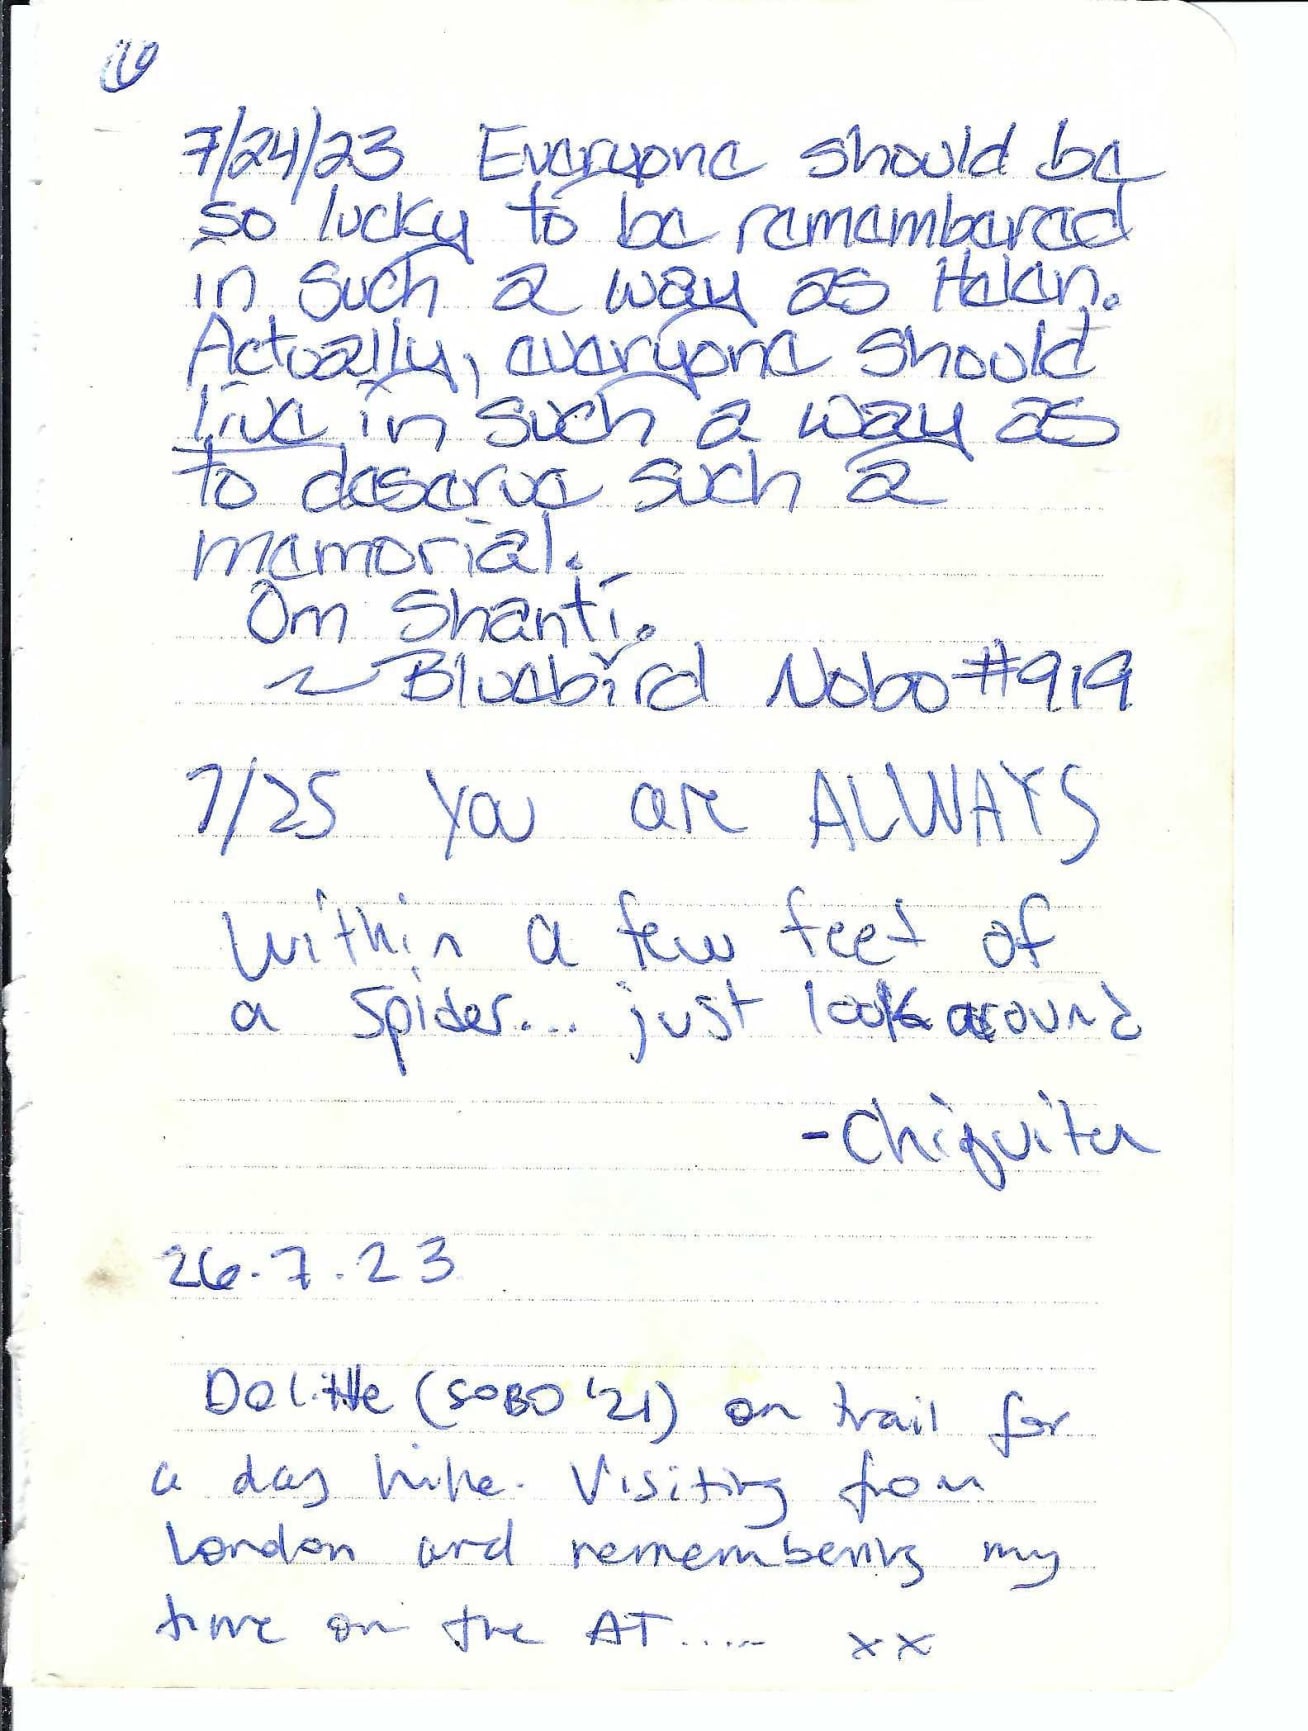 7/24/23 Everyone should be
so lucky to be remembered
in such a way as Helen.
Actually, everyone should
live in such a way as
to deserve such a
memorial.
Om Shanti.
~ Bluebird Nobo #919
7/25 You are ALWAYS
within a few feet of
a spider... just look around
- Chiquita
26.7.23
Dolittle (SOBO '21) on trail for
a day hike. Visiting from
London and remembering my
time on the AT..... xx